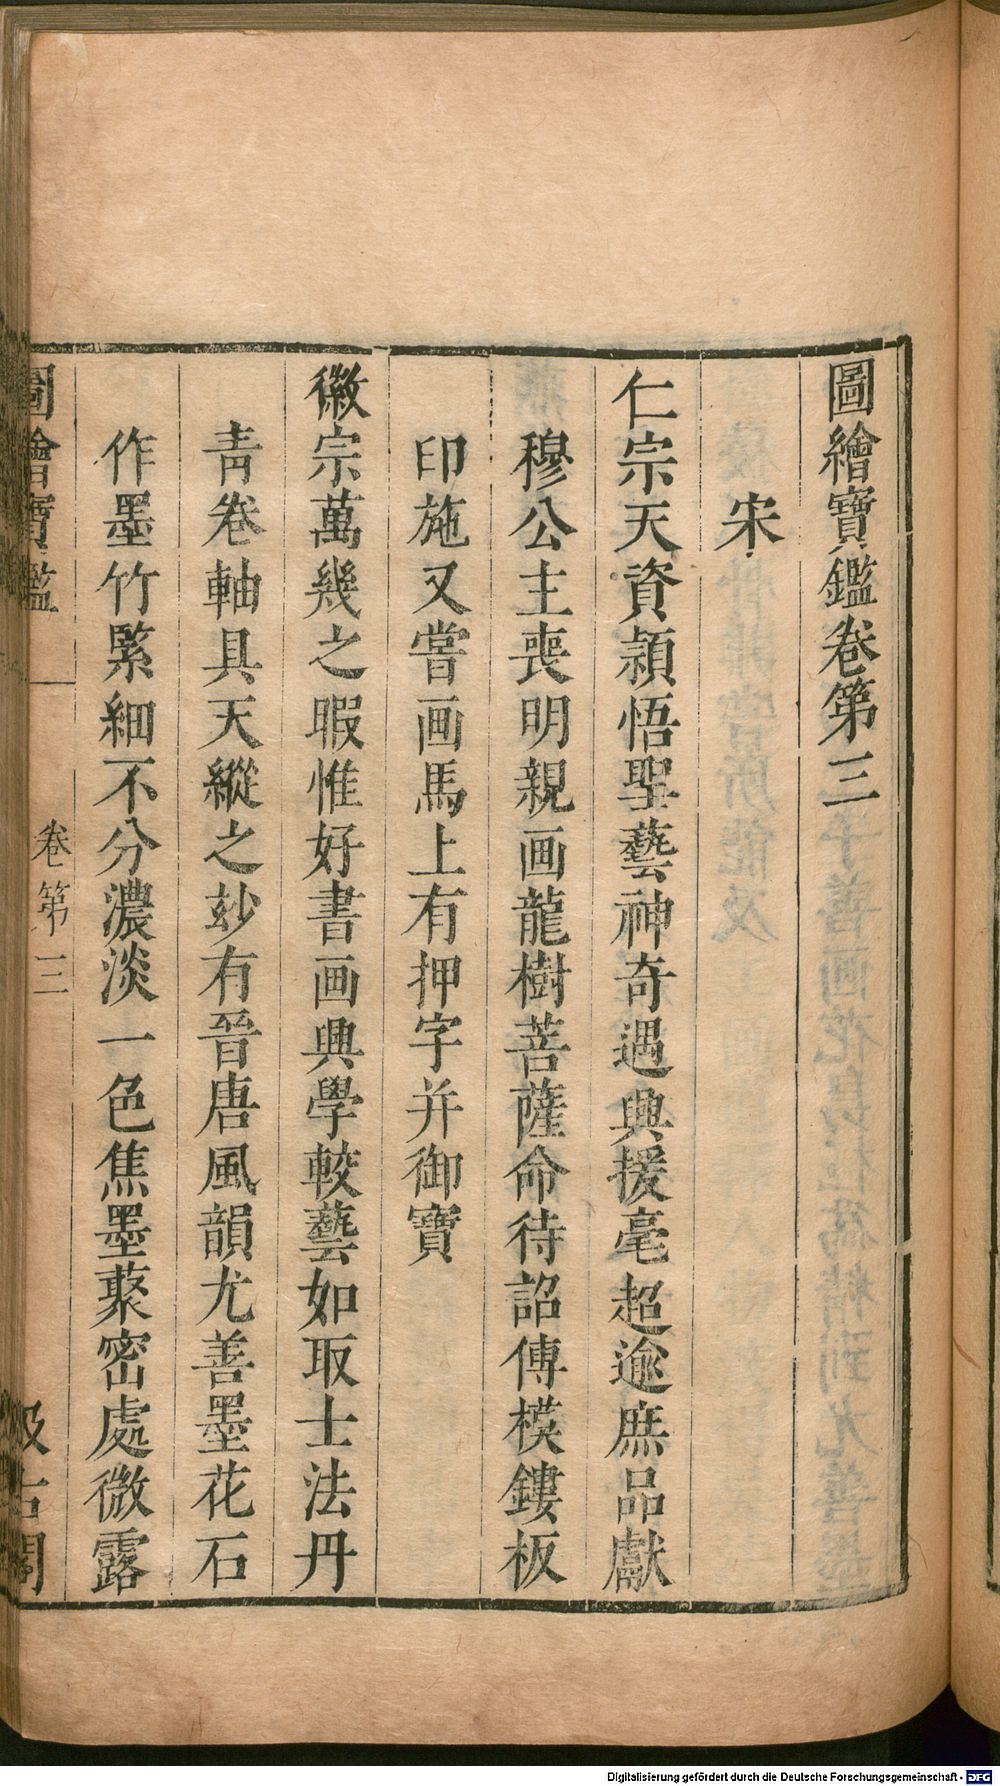 圖繪寶鑑卷第三
宋
仁宗天資穎悟聖藝神奇遇興援毫超逾庶品獻
穆公主喪明親画龍樹菩薩命待詔傳模鏤板
印施又嘗画馬上有押字并御寶
徽宗萬幾之暇惟好書画興學較藝如取士法丹
青卷軸具天縱之玅有晉唐風韻尤善墨花石
作墨竹緊細不分濃淡一色焦墨藂密處微露
圖繪寶鑑 卷第三 汲古閣
Digitalisierung gefördert durch die Deutsche Forschungsgemeinschaft - DFG